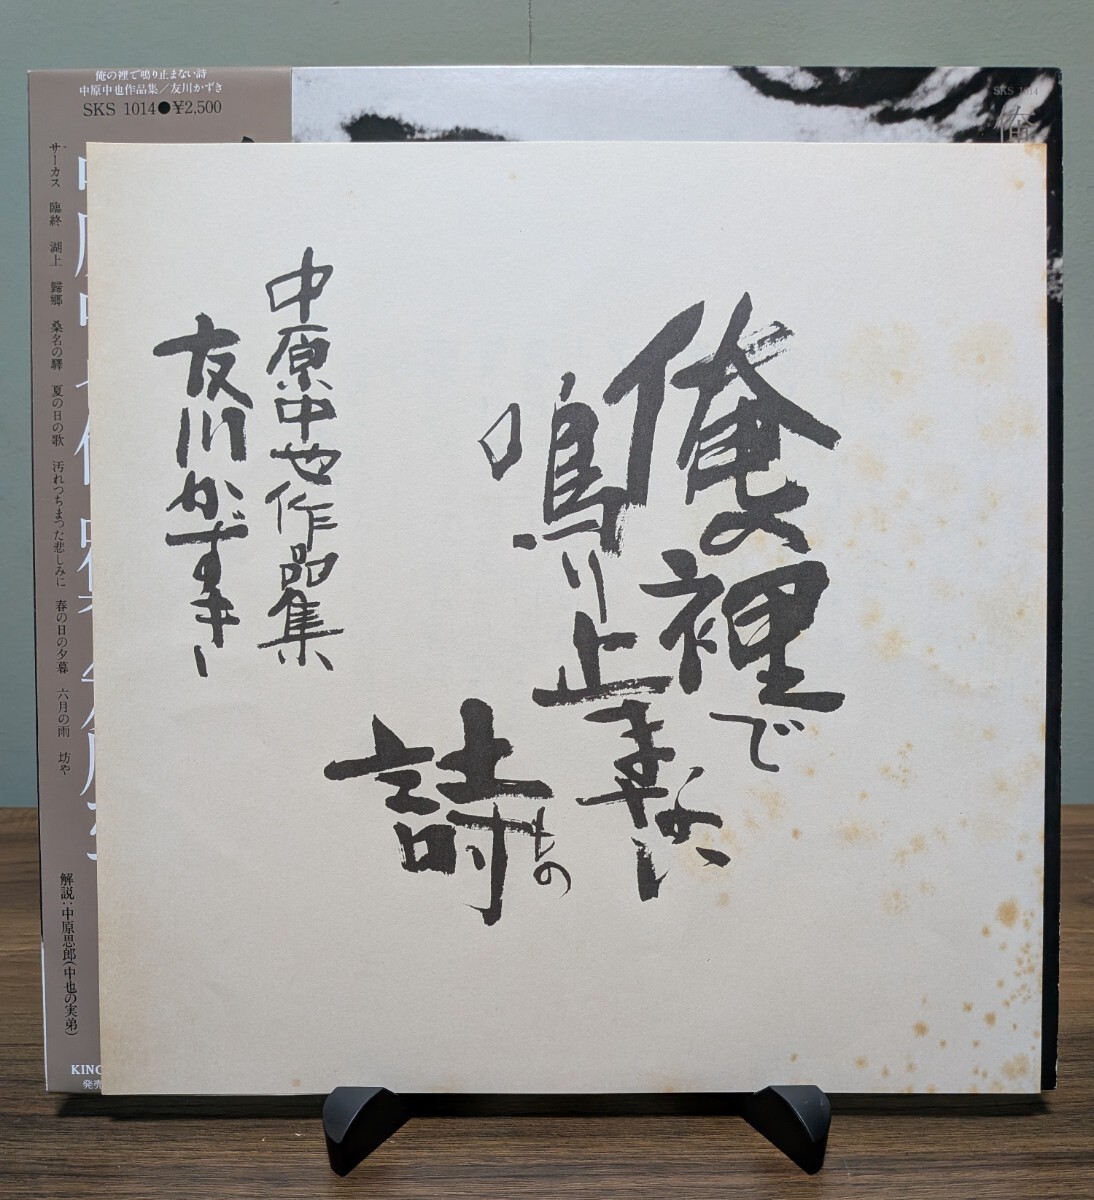 俺の裡で鳴り止まない詩
中原中也作品集／友川かずき
SKS 1014●¥2,500
サーカス 臨終 湖上 歸郷 桑名の驛 夏の日の歌 汚れつちまつた悲しみに 春の日の夕暮 六月の雨 坊や
解説：中原思郎(中也の実弟)
KING
発売
SKS 1014
俺
俺の裡で
鳴り止まない
詩
もの
中原中也作品集
友川かずき